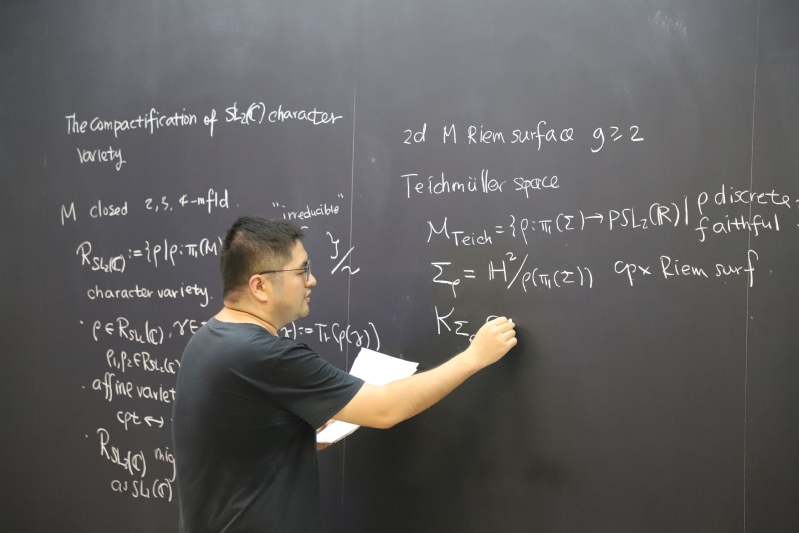 The Compactification of SL₂(ℂ) character
variety
M closed 2, 3, 4-mfld.
"irreducible"
R_{SL₂(ℂ)} := {ρ | ρ: π₁(M) }/~
character variety.
· ρ ∈ R_{SL₂(ℂ)}, γ ∈ := Tr(ρ(γ))
ρ₁, ρ₂ ∈ R_{SL₂(ℂ)}
· affine variet
cpt ↔
· R_{SL₂(ℂ)}
as SL₂(ℂ)
2d M Riem surface g ≥ 2
Teichmüller space
M_{Teich} = {ρ: π₁(Σ) → PSL₂(ℝ) | ρ discrete
faithful
Σ_ρ = ℍ²/ρ(π₁(Σ)) cpx Riem surf.
K_{Σ_ρ}